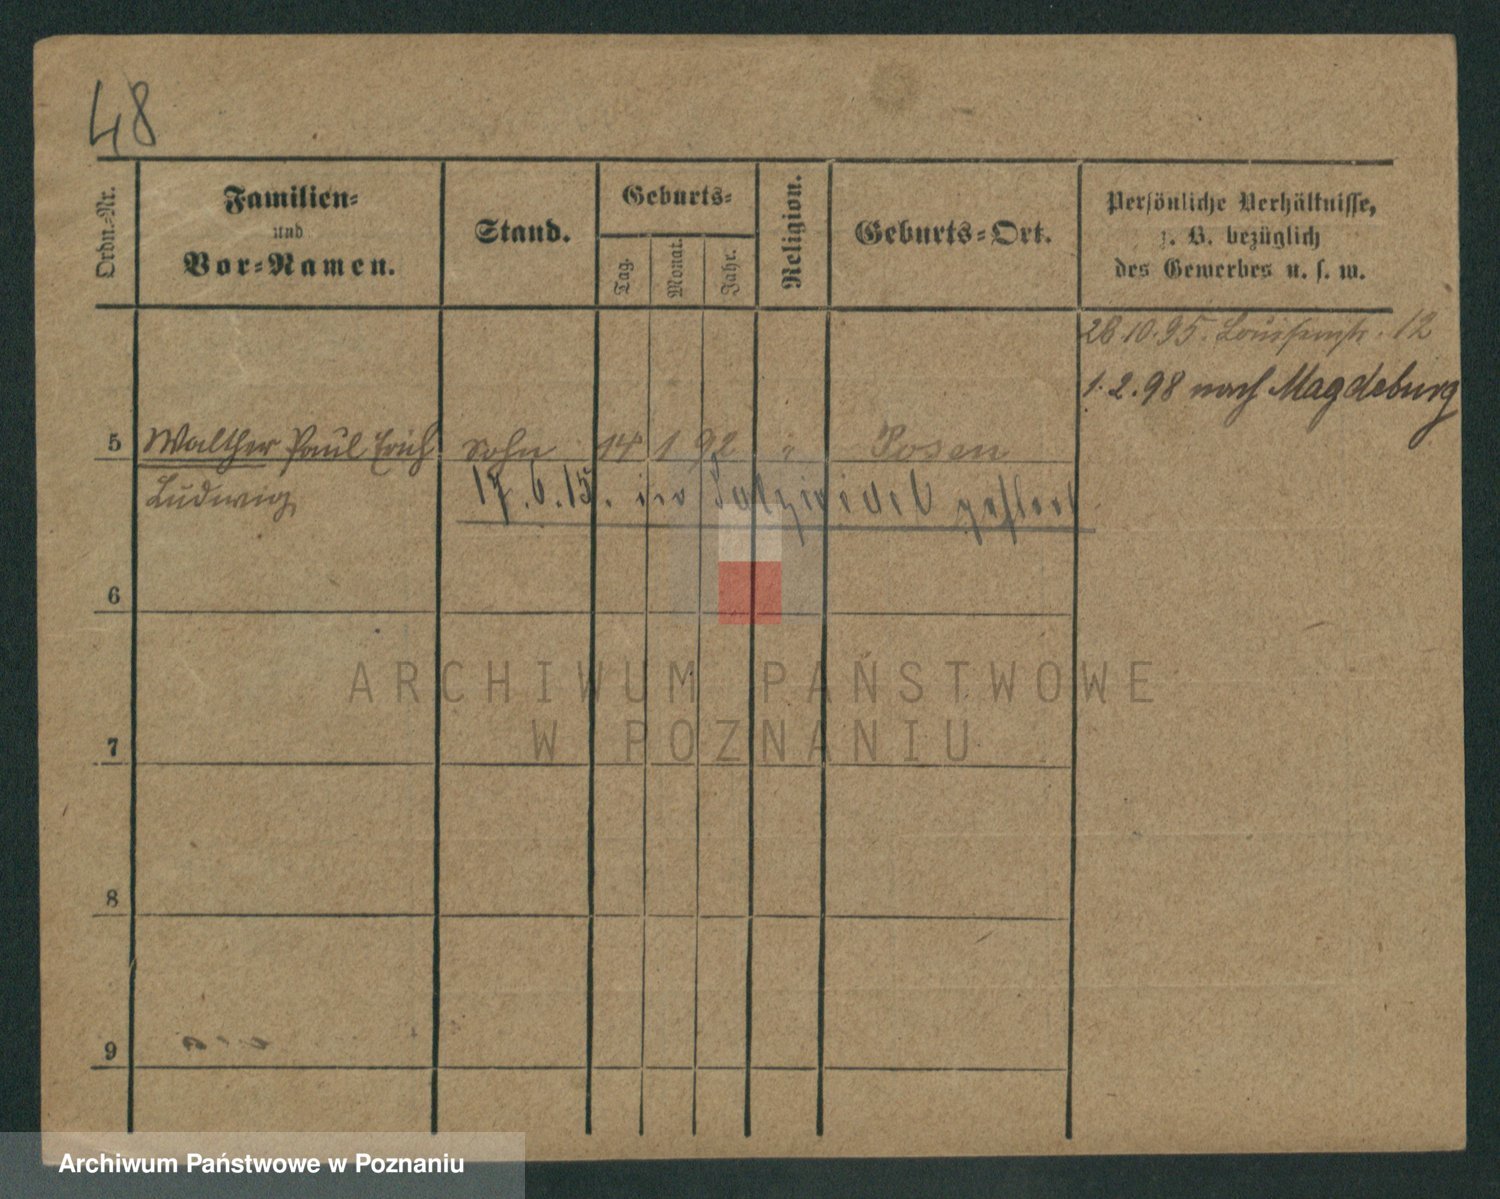 48
Ordn.-Nr.
Familien-
und
Vor-Namen.
Stand.
Geburts-
Tag.
Monat.
Jahr.
Religion.
Geburts-Ort.
Persönliche Verhältnisse,
z. B. bezüglich
des Gewerbes u. s. w.
28.10.95. Louisenstr. 12
1.2.98 nach Magdeburg
5 Walther Paul Erich Sohn 14 1 92 Posen
Ludwig
17.6.15. in Salzwedel
6
7
8
9
ARCHIWUM PAŃSTWOWE
W POZNANIU
Archiwum Państwowe w Poznaniu